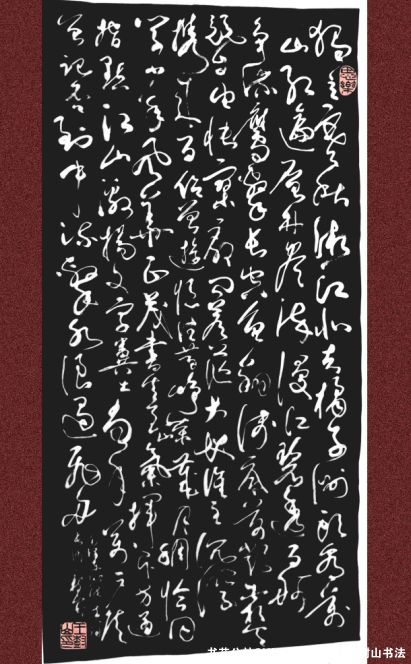 独立寒秋湘江北去橘子洲头看万
山红遍层林尽染漫江碧透百舸
争流鹰击长空鱼翔浅底万类霜天
竞自由怅寥廓问苍茫大地谁主沉浮
携来百侣曾游忆往昔峥嵘岁月稠恰同
学少年风华正茂书生意气挥斥方遒
指点江山激扬文字粪土当年万户侯
曾记否到中流击水浪遏飞舟
山书法